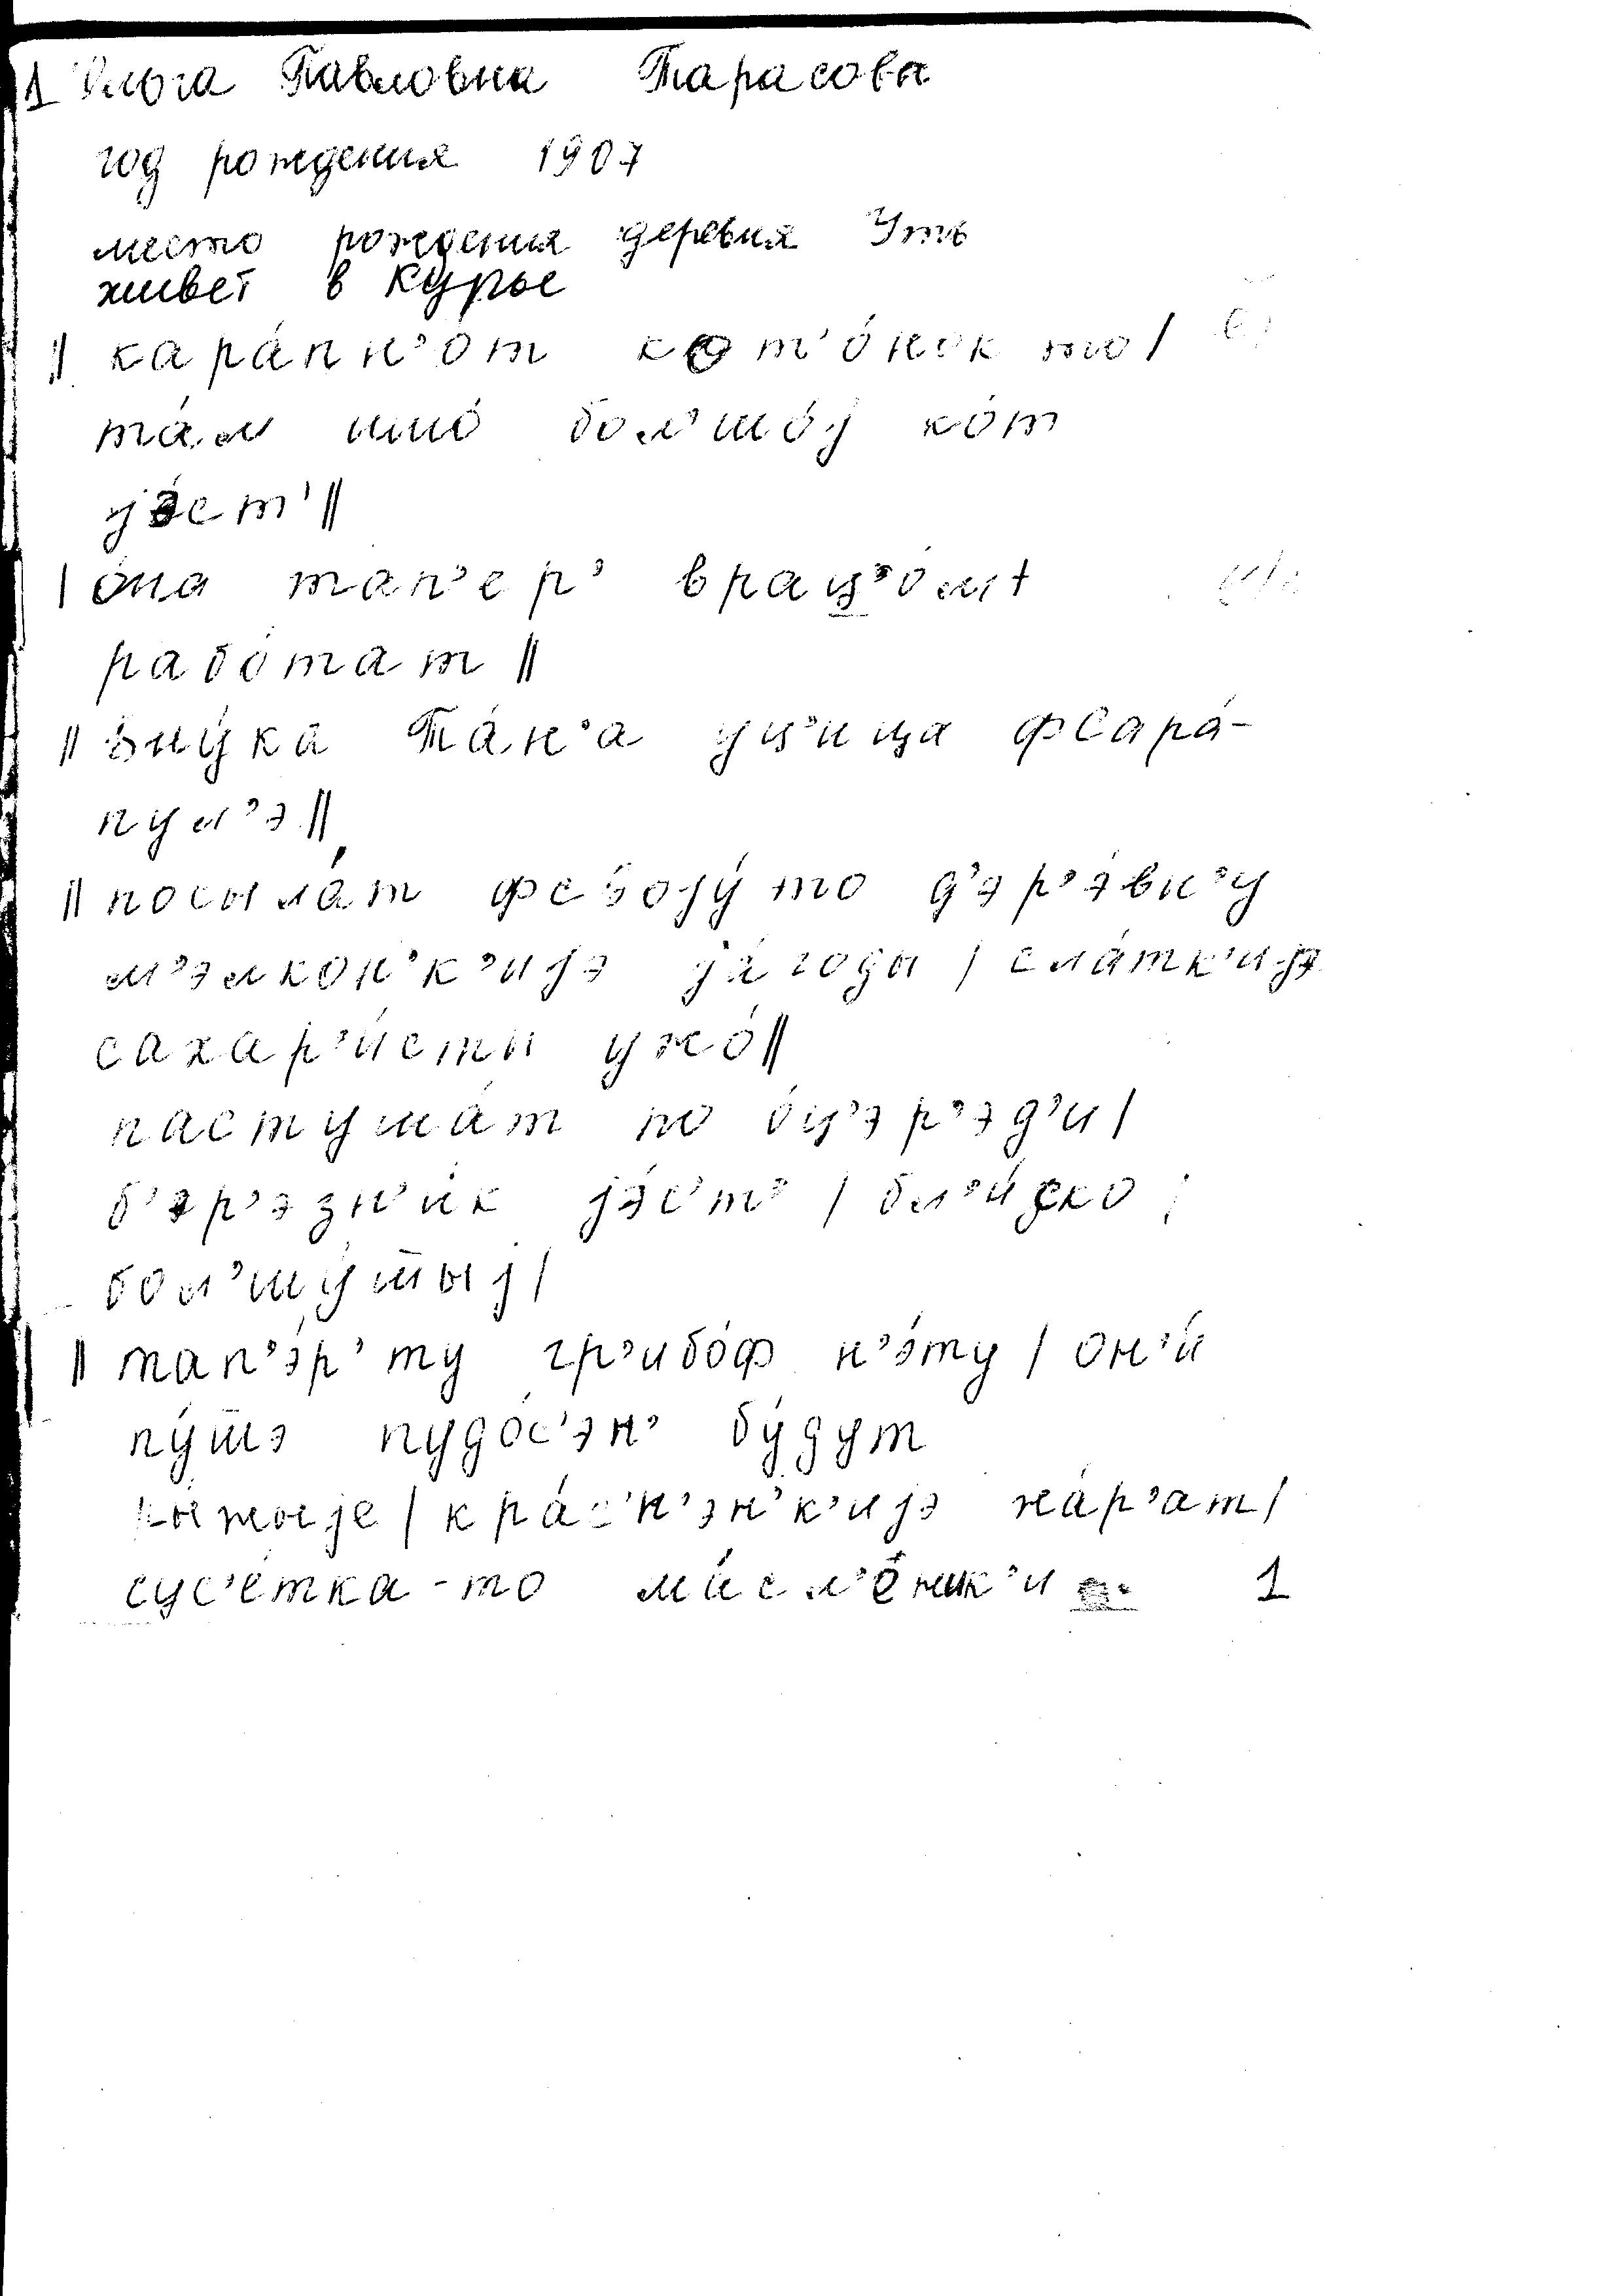 1 Ольга Павловна Тарасова
год рождения 1907
место рождения деревня Уть
живет в Курье
|| кара́пн'от кот'о́нок то |
та́м ишо́ бол'шо́j ко́т
jэ́ст' ||
| о́на тап'ер' врац'о́м |
рабо́тат ||
|| вну́ка Та́н'а уц'ица фсара́-
пул'э ||
|| посыла́т фс'оjу́ то д'эр'э́вн'у
м'элкон'к'иjэ jа́годы | сла́тк'иjэ
сахар'и́сты ужо́ ||
пастуша́т по о́ц'эр'эд'и |
б'эр'эзн'и́к jэ́с'т' | бл'и́ско |
бол'шу́шыj |
|| тап'э́р' ту гр'ибо́ф н'э́ту | он'и́
пу́шэ пудо́с'эн' бу́дут
ры́жыjе | кра́с'н'эн'к'иjэ жа́р'ат |
сус'е́тка-то ма́сл'ёник'и 1